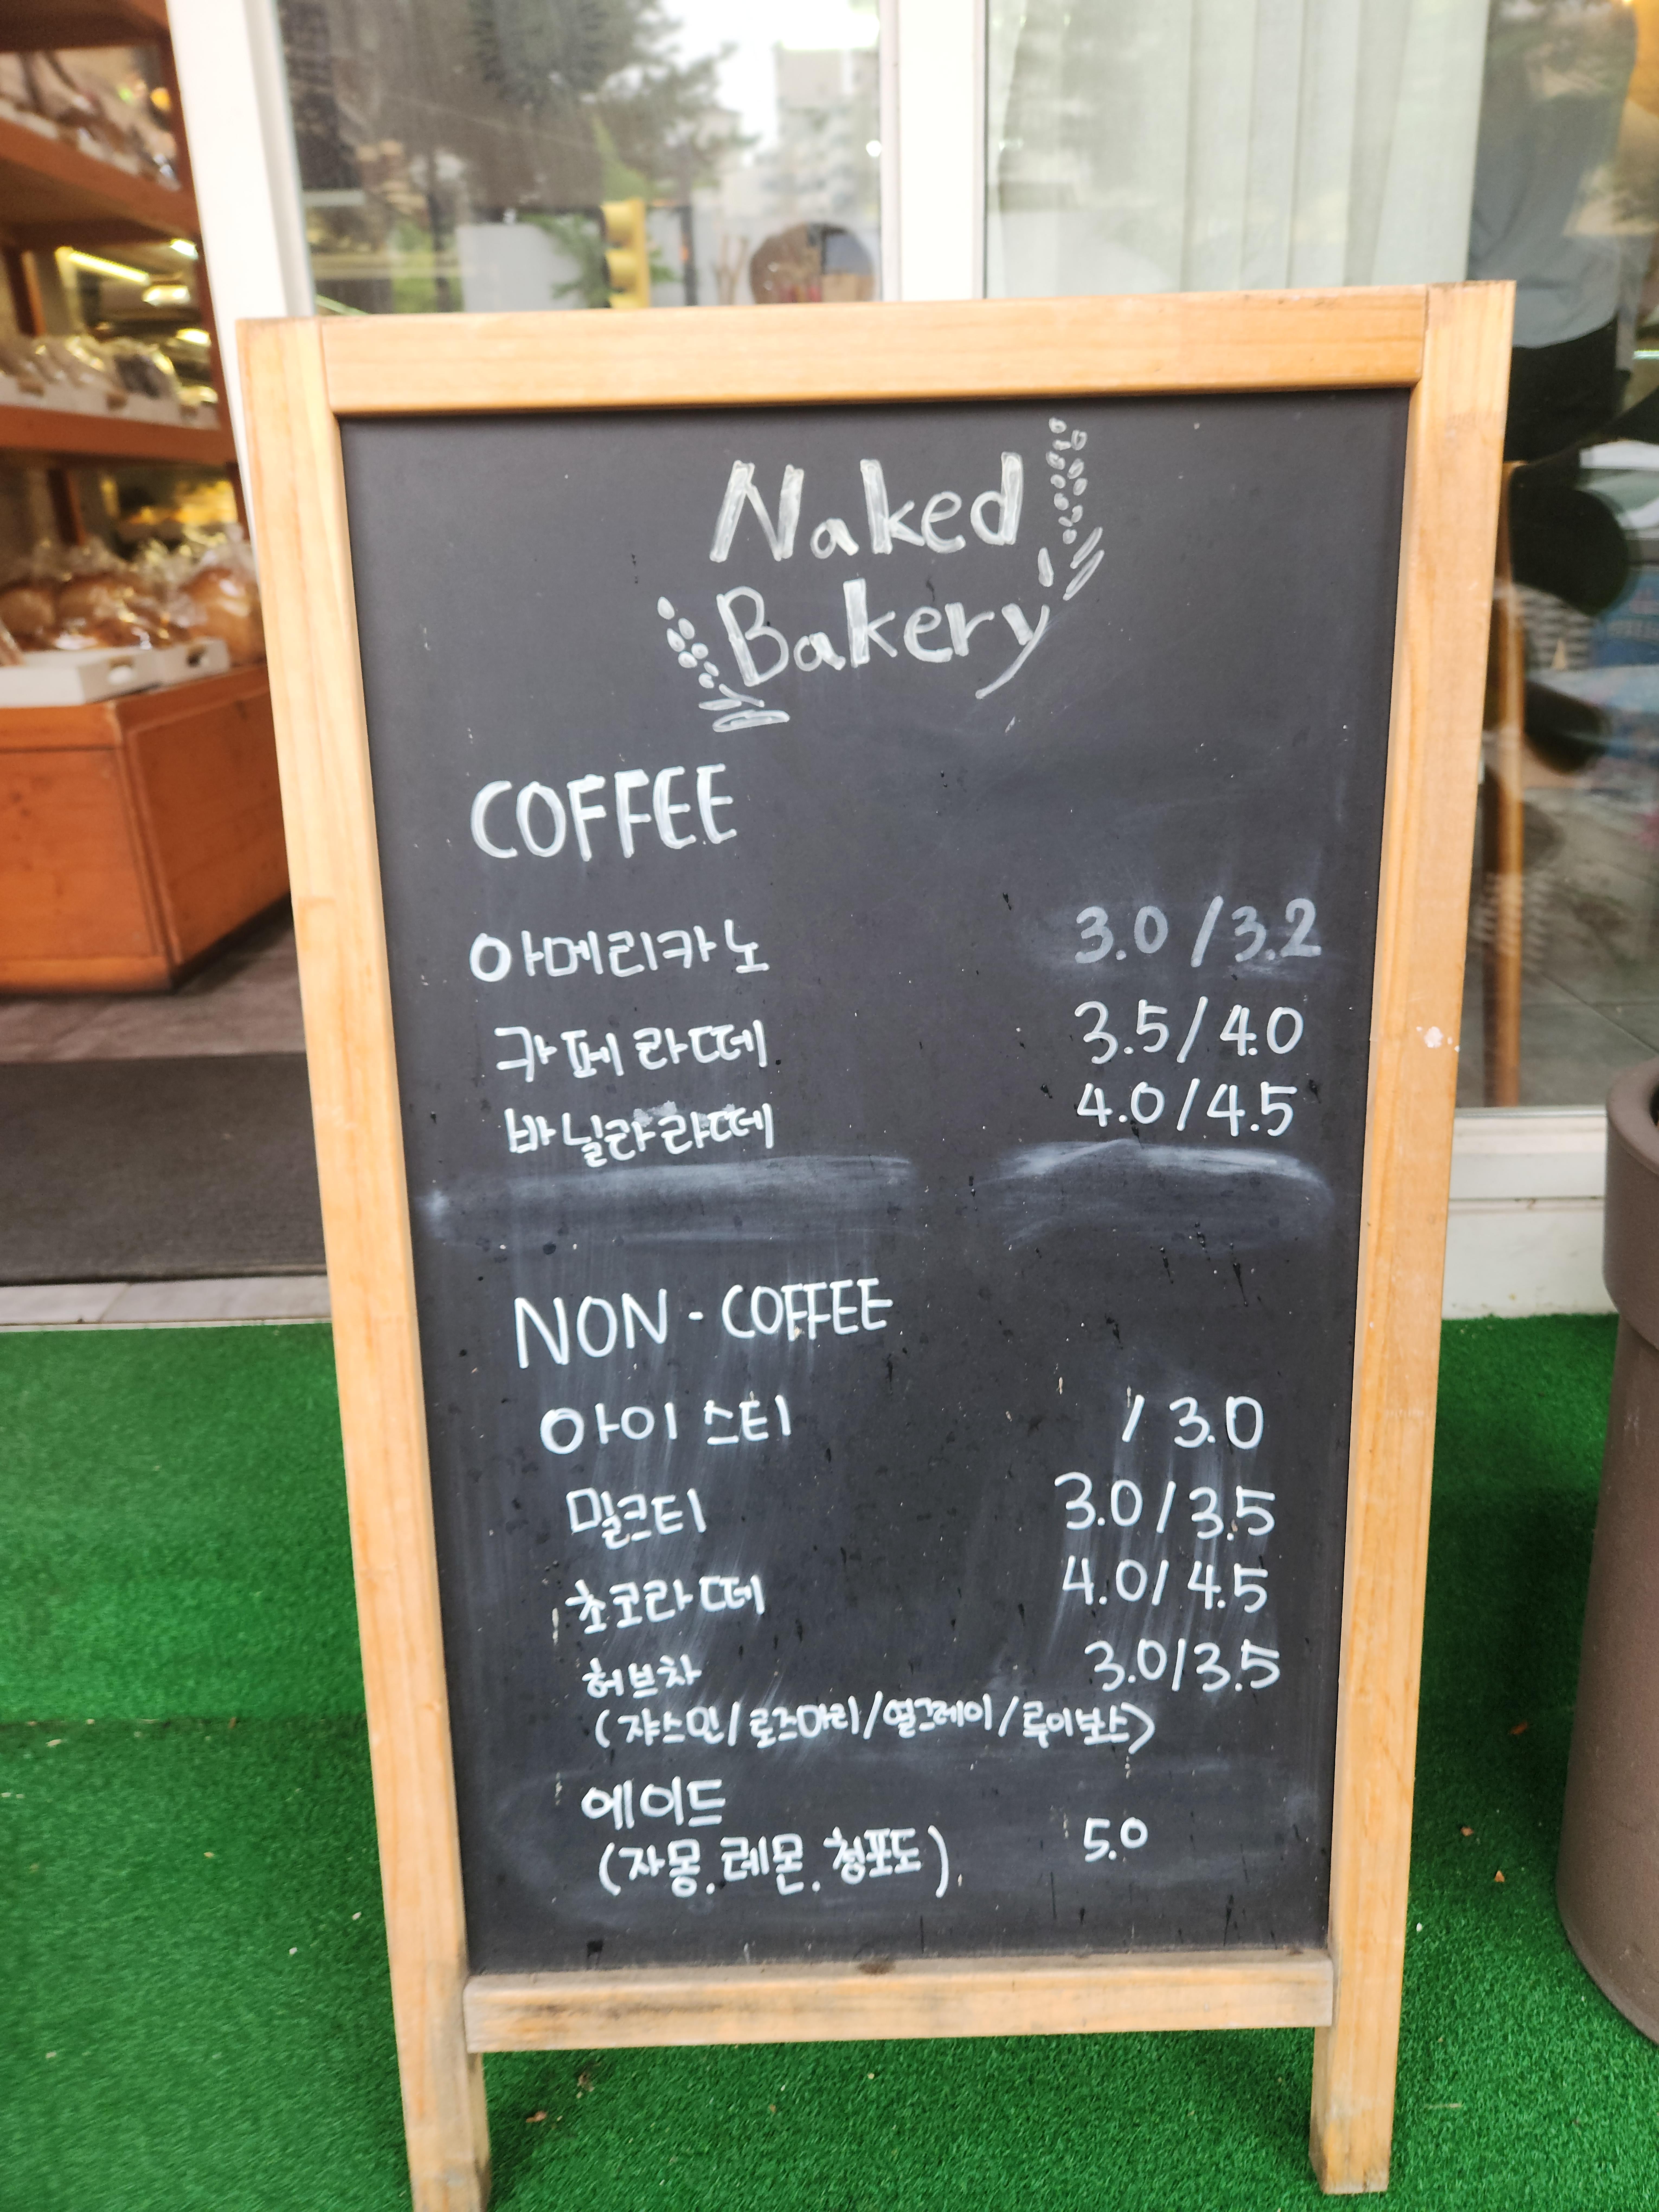 Naked
Bakery
COFFEE
아메리카노 3.0/3.2
카페라떼 3.5/4.0
바닐라라떼 4.0/4.5
NON-COFFEE
아이스티 /3.0
밀크티 3.0/3.5
초코라떼 4.0/4.5
허브차 3.0/3.5
(쟈스민/로즈마리/얼그레이/루이보스)
에이드
(자몽.레몬.청포도) 5.0